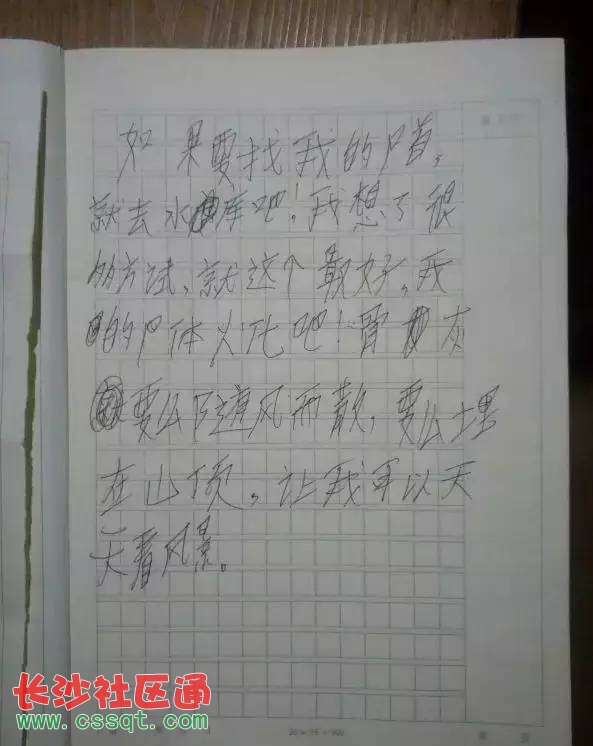 如果要找我的尸首,
就去水库吧!我想了很
多方试,就这个最好,我
的尸体火化吧!骨灰
要么随风而散,要么埋
在山顶,让我可以天
天看风景。
长沙社区通
www.cssqt.com